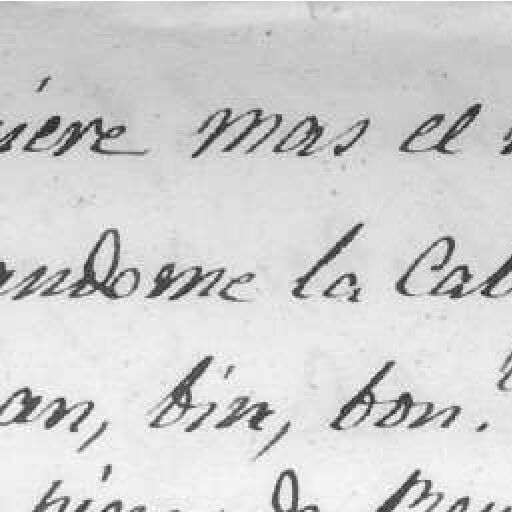 uiere mas el
andome la Cab
an, bin, bon.
de